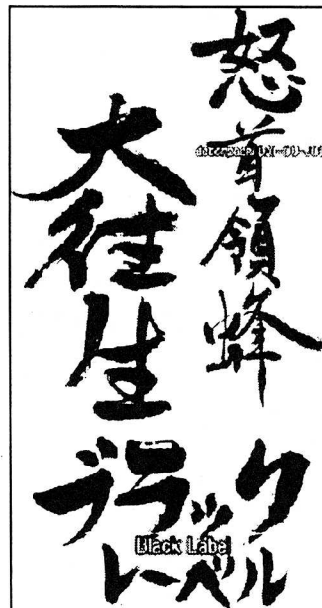 怒首領蜂
大往生
ブラック
レーベル
Black Labe